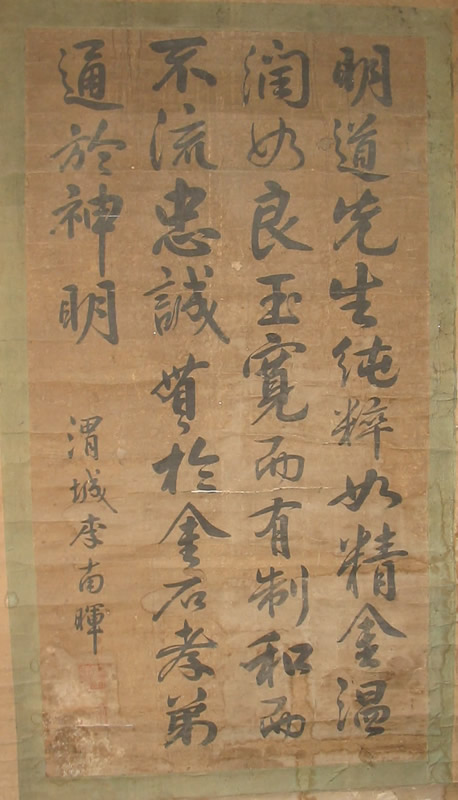 明道先生純粹如精金温
潤如良玉寬而有制和而
不流忠誠貫於金石孝弟
通於神明
渭城李南暉